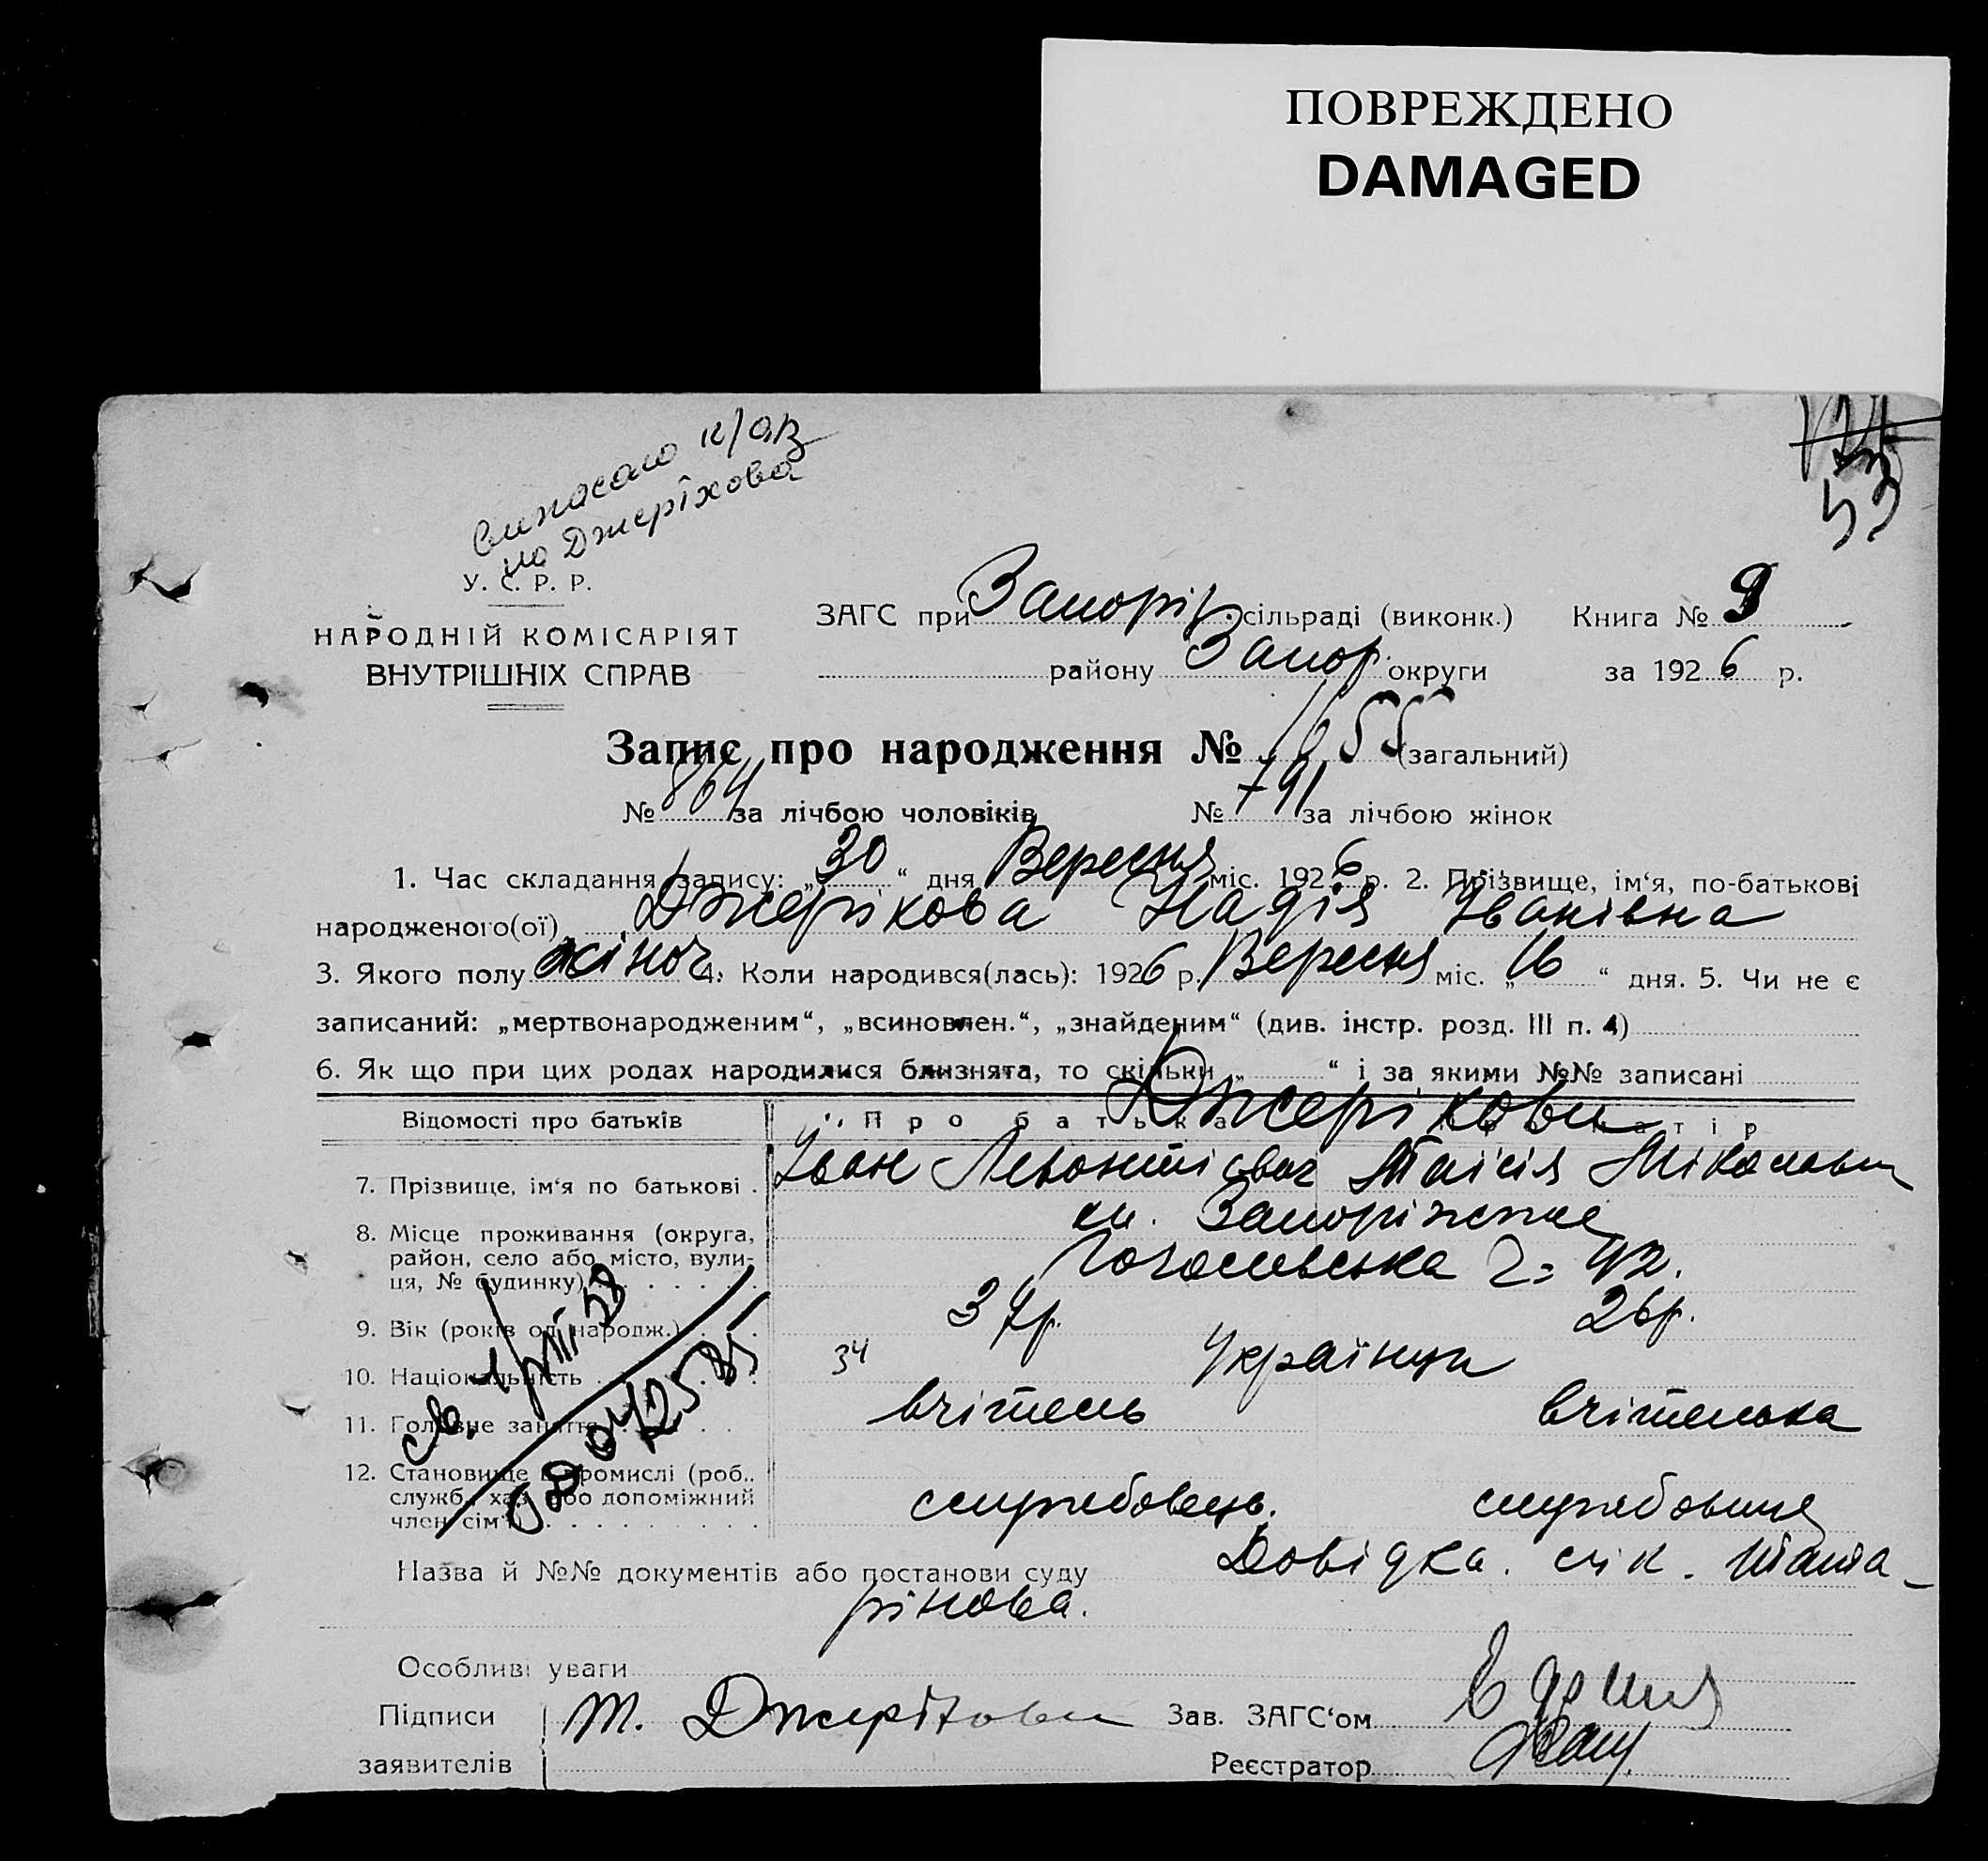 ПОВРЕЖДЕНО
DAMAGED
53
Виписано
на Джеріхова
У. С. Р. Р.
НАРОДНІЙ КОМІСАРІЯТ
ВНУТРІШНІХ СПРАВ
ЗАГС при Запоріз. сільраді (виконк.) Книга № 9
району Запор. округи за 1926 р.
Запис про народження № 1655 (загальний)
№ 864 за лічбою чоловіків № 791 за лічбою жінок
1. Час складання запису: „30“ дня Вересня міс. 1926 р. 2. Прізвище, ім‘я, по-батькові
народженого(ої) Джерікова Надія Іванівна
3. Якого полу жіноч. 4. Коли народився(лась): 1926 р. Вересня міс. „16“ дня. 5. Чи не є
записаний: „мертвонародженим“, „всиновлен.“, „знайденим“ (див. інстр. розд. III п. 4)
6. Як що при цих родах народилися близнята, то скільки „ “ і за якими №№ записані
Відомості про батьків Про батька Джерікови матір
7. Прізвище, ім‘я по батькові . Іван Левонтієвич Таісія Міколавн
8. Місце проживання (округа, м. Запоріжжє
район, село або місто, вули-
ця, № будинку) Гоголевська 42.
9. Вік (років од народж.) 37р. 26р.
10. Національність 34 Українци
11. Головне заняття вчітель вчітелька
12. Становище в промислі (роб.,
служб., хаз. або допоміжний службовець. службовиця
член сім‘ї)
Назва й №№ документів або постанови суду Довідка.
рінова.
Особливі уваги
Підписи Т. Джерікови Зав. ЗАГС‘ом
заявителів Реєстратор